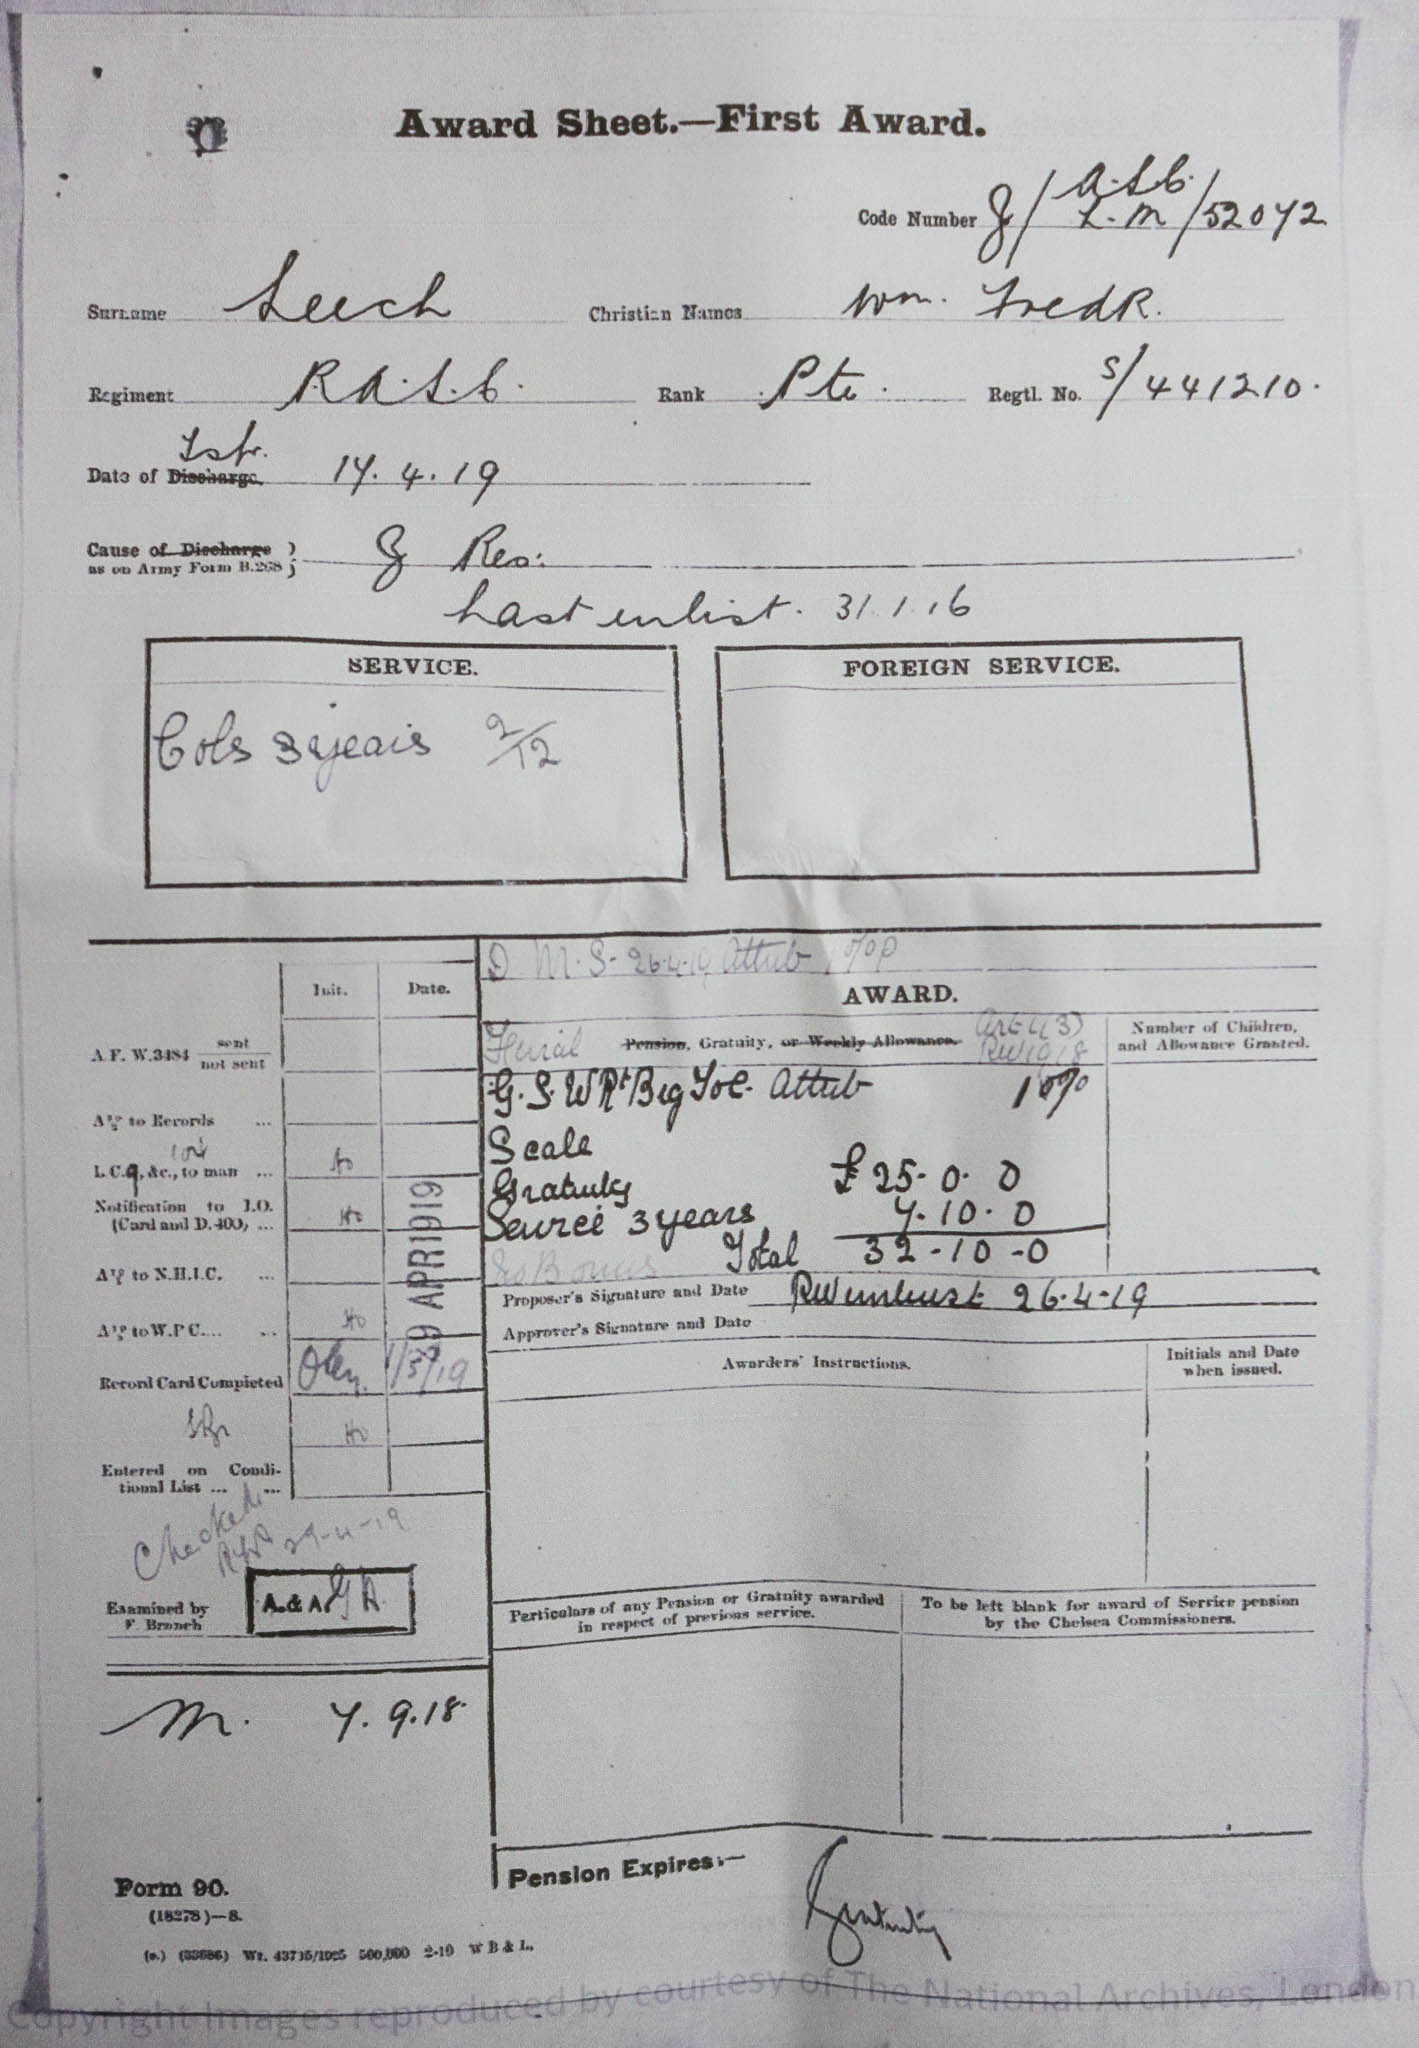 Award Sheet.—First Award.
A.S.C.
Code Number Z/ L.M/52072
Surname Leech Christian Names Wm. Fredk.
Regiment R.A.S.C. Rank Pte. Regtl. No. S/441210.
Tsfr.
Date of Discharge. 17.4.19
Cause of Discharge } Z Res:
as on Army Form B.268
Last enlist. 31.1.16
SERVICE.
FOREIGN SERVICE.
Cols 3 years 2/12
D.M.S. 26.4.19 Attrib
Init. Date.
AWARD.
A.F. W.3484 sent
not sent
Final Pension, Gratuity, or Weekly Allowance. Art 1(3)
RW 1918
Number of Children,
and Allowance Granted.
G.S.W Rt Big Toe. Attrib 10%
to Records ...
Scale
L.C.9, &c., to man ... No
Gratuity £25-0-0
Notification to I.O.
(Card and D.400) ... No
29 APR 1919
Service 3 years 7.10.0
to N.H.I.C. ...
No Bonus Total 32-10-0
Proposer's Signature and Date 26.4.19
to W.P.C.... ... No
Approver's Signature and Date
Record Card Completed 1/5/19
Awarders' Instructions.
Initials and Date
when issued.
No
Entered on Condi-
tional List ... ...
Checked
29-4-19
Examined by
F. Branch
A. & A.
Particulars of any Pension or Gratuity awarded
in respect of previous service.
To be left blank for award of Service pension
by the Chelsea Commissioners.
M. 7.9.18.
Pension Expires:—
Gratuity
Form 90.
(18278)—8.
(33686) Wt. 43715/1025 500,000 2-19 W B & L.
Copyright Images reproduced by courtesy of The National Archives, London